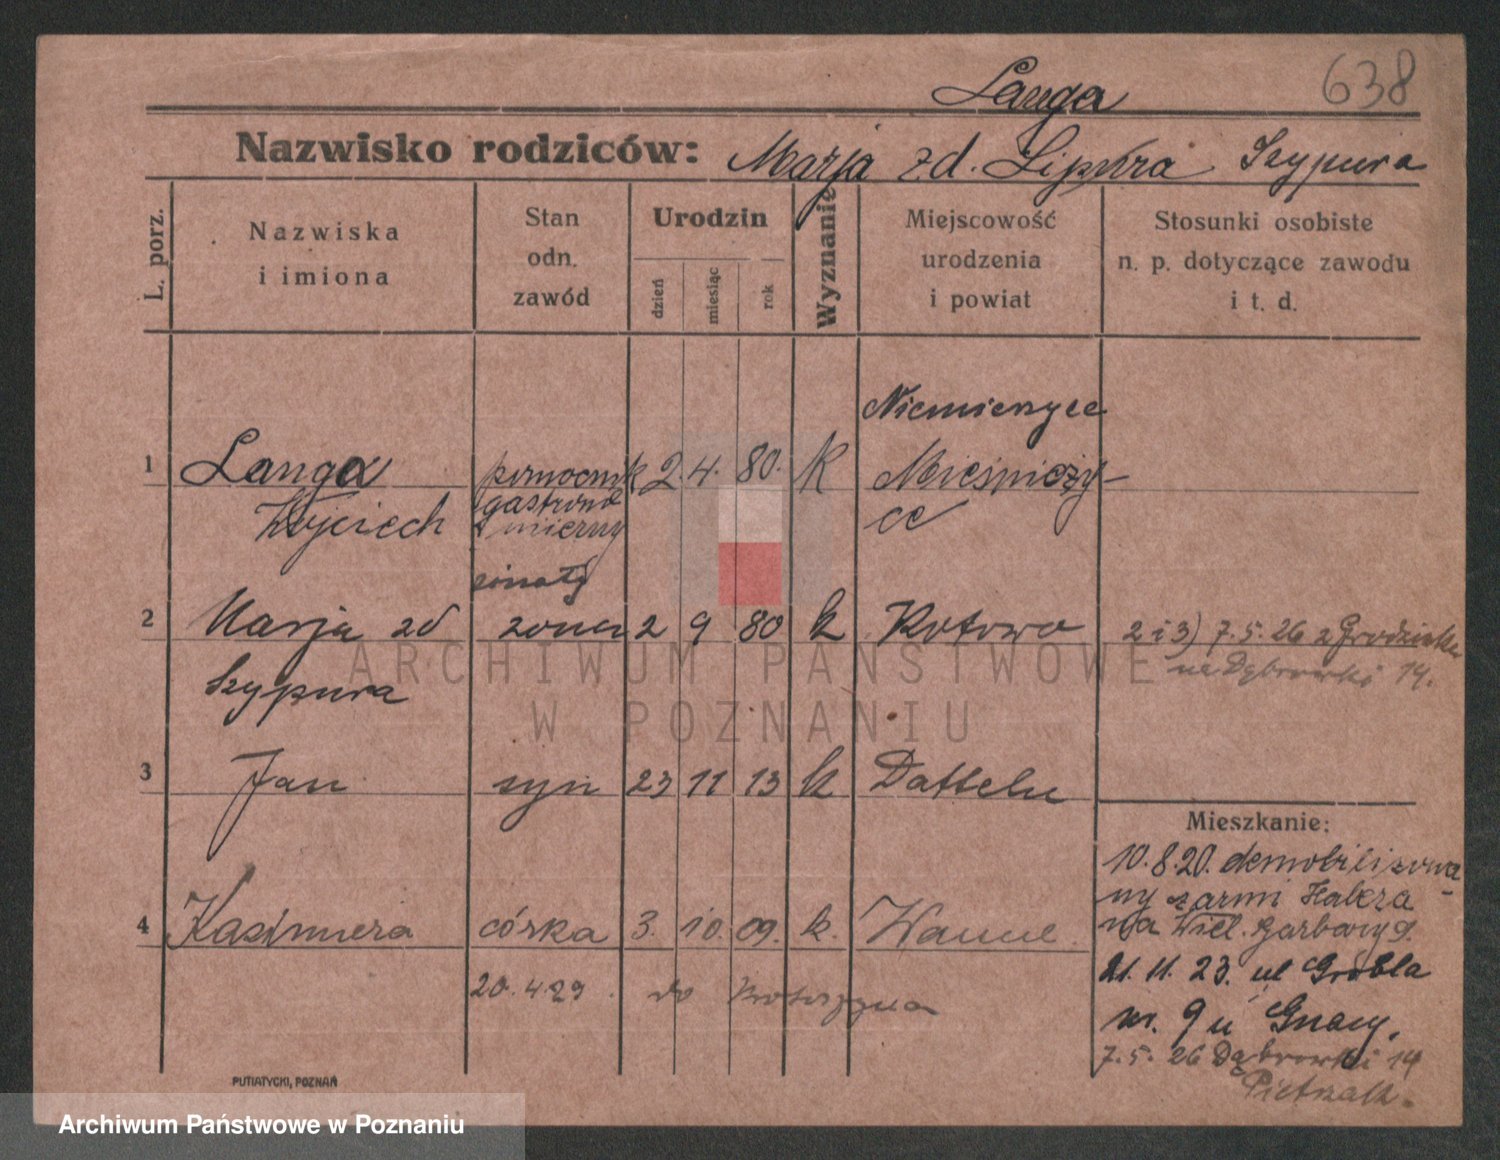 638
Langa
Nazwisko rodziców: Marja zd. Szypura
L. porz.
Nazwiska i imiona
Stan odn. zawód
Urodzin
dzień
miesiąc
rok
Wyznanie
Miejscowość urodzenia i powiat
Stosunki osobiste n. p. dotyczące zawodu i t. d.
Niemierzyce
1 Langa 2. 4. 80. k
Wojciech
żonaty
2 Marja zd żona 2 9 80 k Kotowo 2 i 3) 7.5.26 z Grodziska
Szypura na Dąbrowski 14.
3 Jan syn 23 11 13 k Datteln
Mieszkanie:
10.8.20. demobilizowa-
ny z armi Hallera
na Wiel. Garbary 9.
4 Kazimiera córka 3. 10. 09. k. Wanne
21. 11. 23. ul Grobla
20.4.29. do Krotoszyna
nr. 9 u Gnacy.
7.5.26 Dąbrowski 14
Pietrzak.
PUTIATYCKI, POZNAŃ
ARCHIWUM PAŃSTWOWE
W POZNANIU
Archiwum Państwowe w Poznaniu